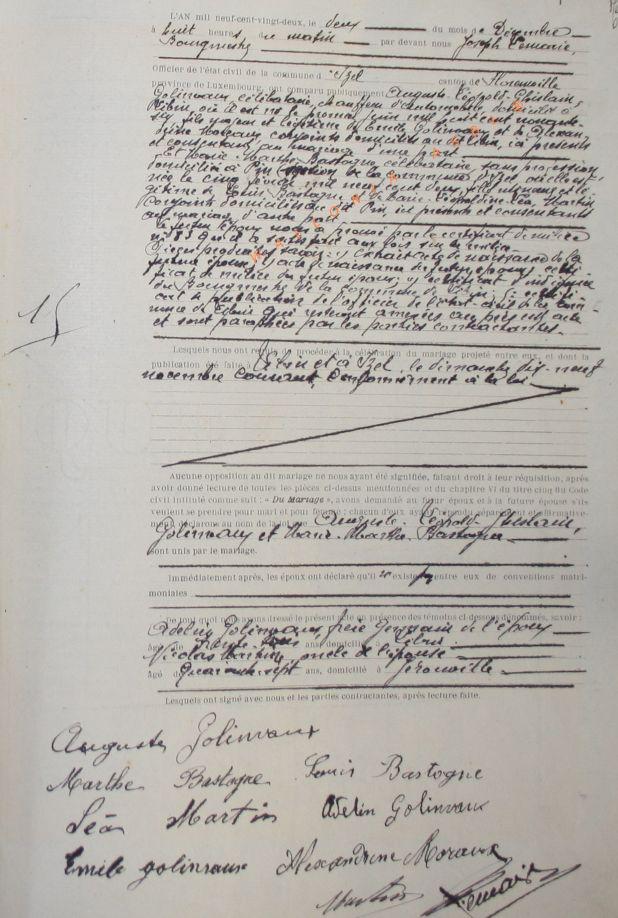 L'AN mil neuf-cent-vingt-deux, le deux du mois de Décembre
à huit heures du matin par devant nous Joseph Lemaire,
Bourgmestre
Officier de l'état civil de la commune d'Izel canton de Florenville
province de Luxembourg, ont comparu publiquement Auguste Léopold Ghislain,
Golinvaux célibataire, chauffeur d'automobile, domicilié à
Libin, où il est né le premier juin mil huit cent nonante
fils majeur et légitime de Emile Golinvaux et de Alexan-
drine Moraux conjoints domiciliés au dit Libin, ici présents
et consentant au mariage d'une part
Et Marie Marthe Bastogne, célibataire, sans profession
domiciliée à Pin (section de la commune d'Izel où elle est
née le cinq mil neuf cent deux, fille mineure et lé-
gitime de Louis Bastogne et de Marie Léopoldine Léa Martin
Conjoints domiciliés au dit Pin, ici présents et consentants
au mariage d'autre part
Le futur époux nous a prouvé par le certificat de milice
n° 83 qu'il a satisfait aux lois sur la milice
Pièces produites, savoir: 1) Extrait acte de naissance de la
future épouse, 2) acte de naissance du futur époux, certi-
ficat de milice du futur époux, certificat d'indigence
du Bourgmestre de la commune de
de publication de l'officier de l'état civil de la com-
mune de Libin qui resteront annexées au présent acte
et sont paraphées par les parties contractantes.
15
Lesquels nous ont requis de procéder à la célébration du mariage projeté entre eux, et dont la
publication été faite, à Libin et à Izel, le dimanche dix-neuf
novembre courant, Conformément à la loi
Aucune opposition au dit mariage ne nous ayant été signifiée, faisant droit à leur réquisition, après
avoir donné lecture de toutes les pièces ci-dessus mentionnées et du chapitre VI du titre cinq du Code
civil intitulé comme suit : « Du Mariage », avons demandé au futur époux et à la future épouse s'ils
veulent se prendre pour mari et pour femme : chacun d'eux ayant répondu séparément et affirmative-
ment déclarons au nom de la loi que Auguste Léopold Ghislain,
Golinvaux et Marie Marthe Bastogne
sont unis par le mariage.
Immédiatement après, les époux ont déclaré qu'il n'existe pas entre eux de conventions matri-
moniales
De tout quoi nous avons dressé le présent acte en présence des témoins ci-dessous dénommés, savoir :
Adelin Golinvaux, frère Germain de l'époux
âgé de ans, domicilié à Libin
Nicolas Martin, oncle de l'épouse
âgé de Quarante-sept ans, domicilié à Gérouville
Lesquels ont signé avec nous et les parties contractantes, après lecture faite.
Auguste Golinvaux
Marthe Bastogne Louis Bastogne
Léa Martin Adelin Golinvaux
Emile golinvaux Alexandrine Moraux
Martin Lemaire